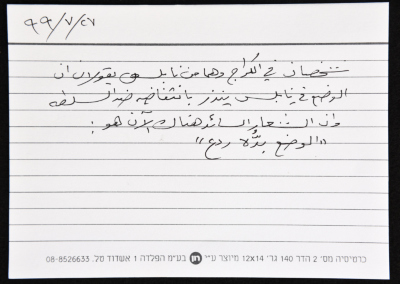 ٩٩/٧/٢٧
شخصان في الكراج وهما من نابلس يقولان ان
الوضع في نابلس ينذر بانتفاضه ضد السلطه
وان الشعار السائد هناك الآن هو :
"الوضع بدُّه ردع"
כרטיסיה מס' 2 הדר 140 גר' 12x14 מיוצר ע"י חן בע"מ הפלדה 1 אשדוד טל. 08-8526633